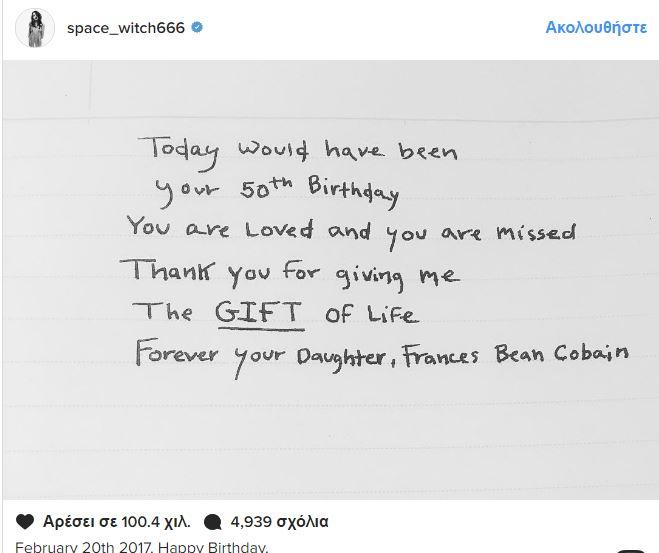 space_witch666
Ακολουθήστε
Today would have been
your 50th Birthday
You are Loved and you are missed
Thank you for giving me
The GIFT of Life
Forever your Daughter, Frances Bean Cobain
Αρέσει σε 100.4 χιλ. 4,939 σχόλια
February 20th 2017. Happy Birthday.